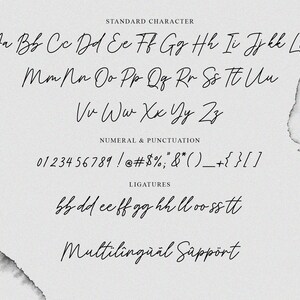 STANDARD CHARACTER
Aa Bb Cc Dd Ee Ff Gg Hh Ii Jj Kk L
Mm Nn Oo Pp Qq Rr Ss Tt Uu
Vv Ww Xx Yy Zz
NUMERAL & PUNCTUATION
0123456789 !@#$%;"&*()_+{}[]
LIGATURES
bb dd ee ff gg hh ll oo ss tt
Multilingüãl Sûppört